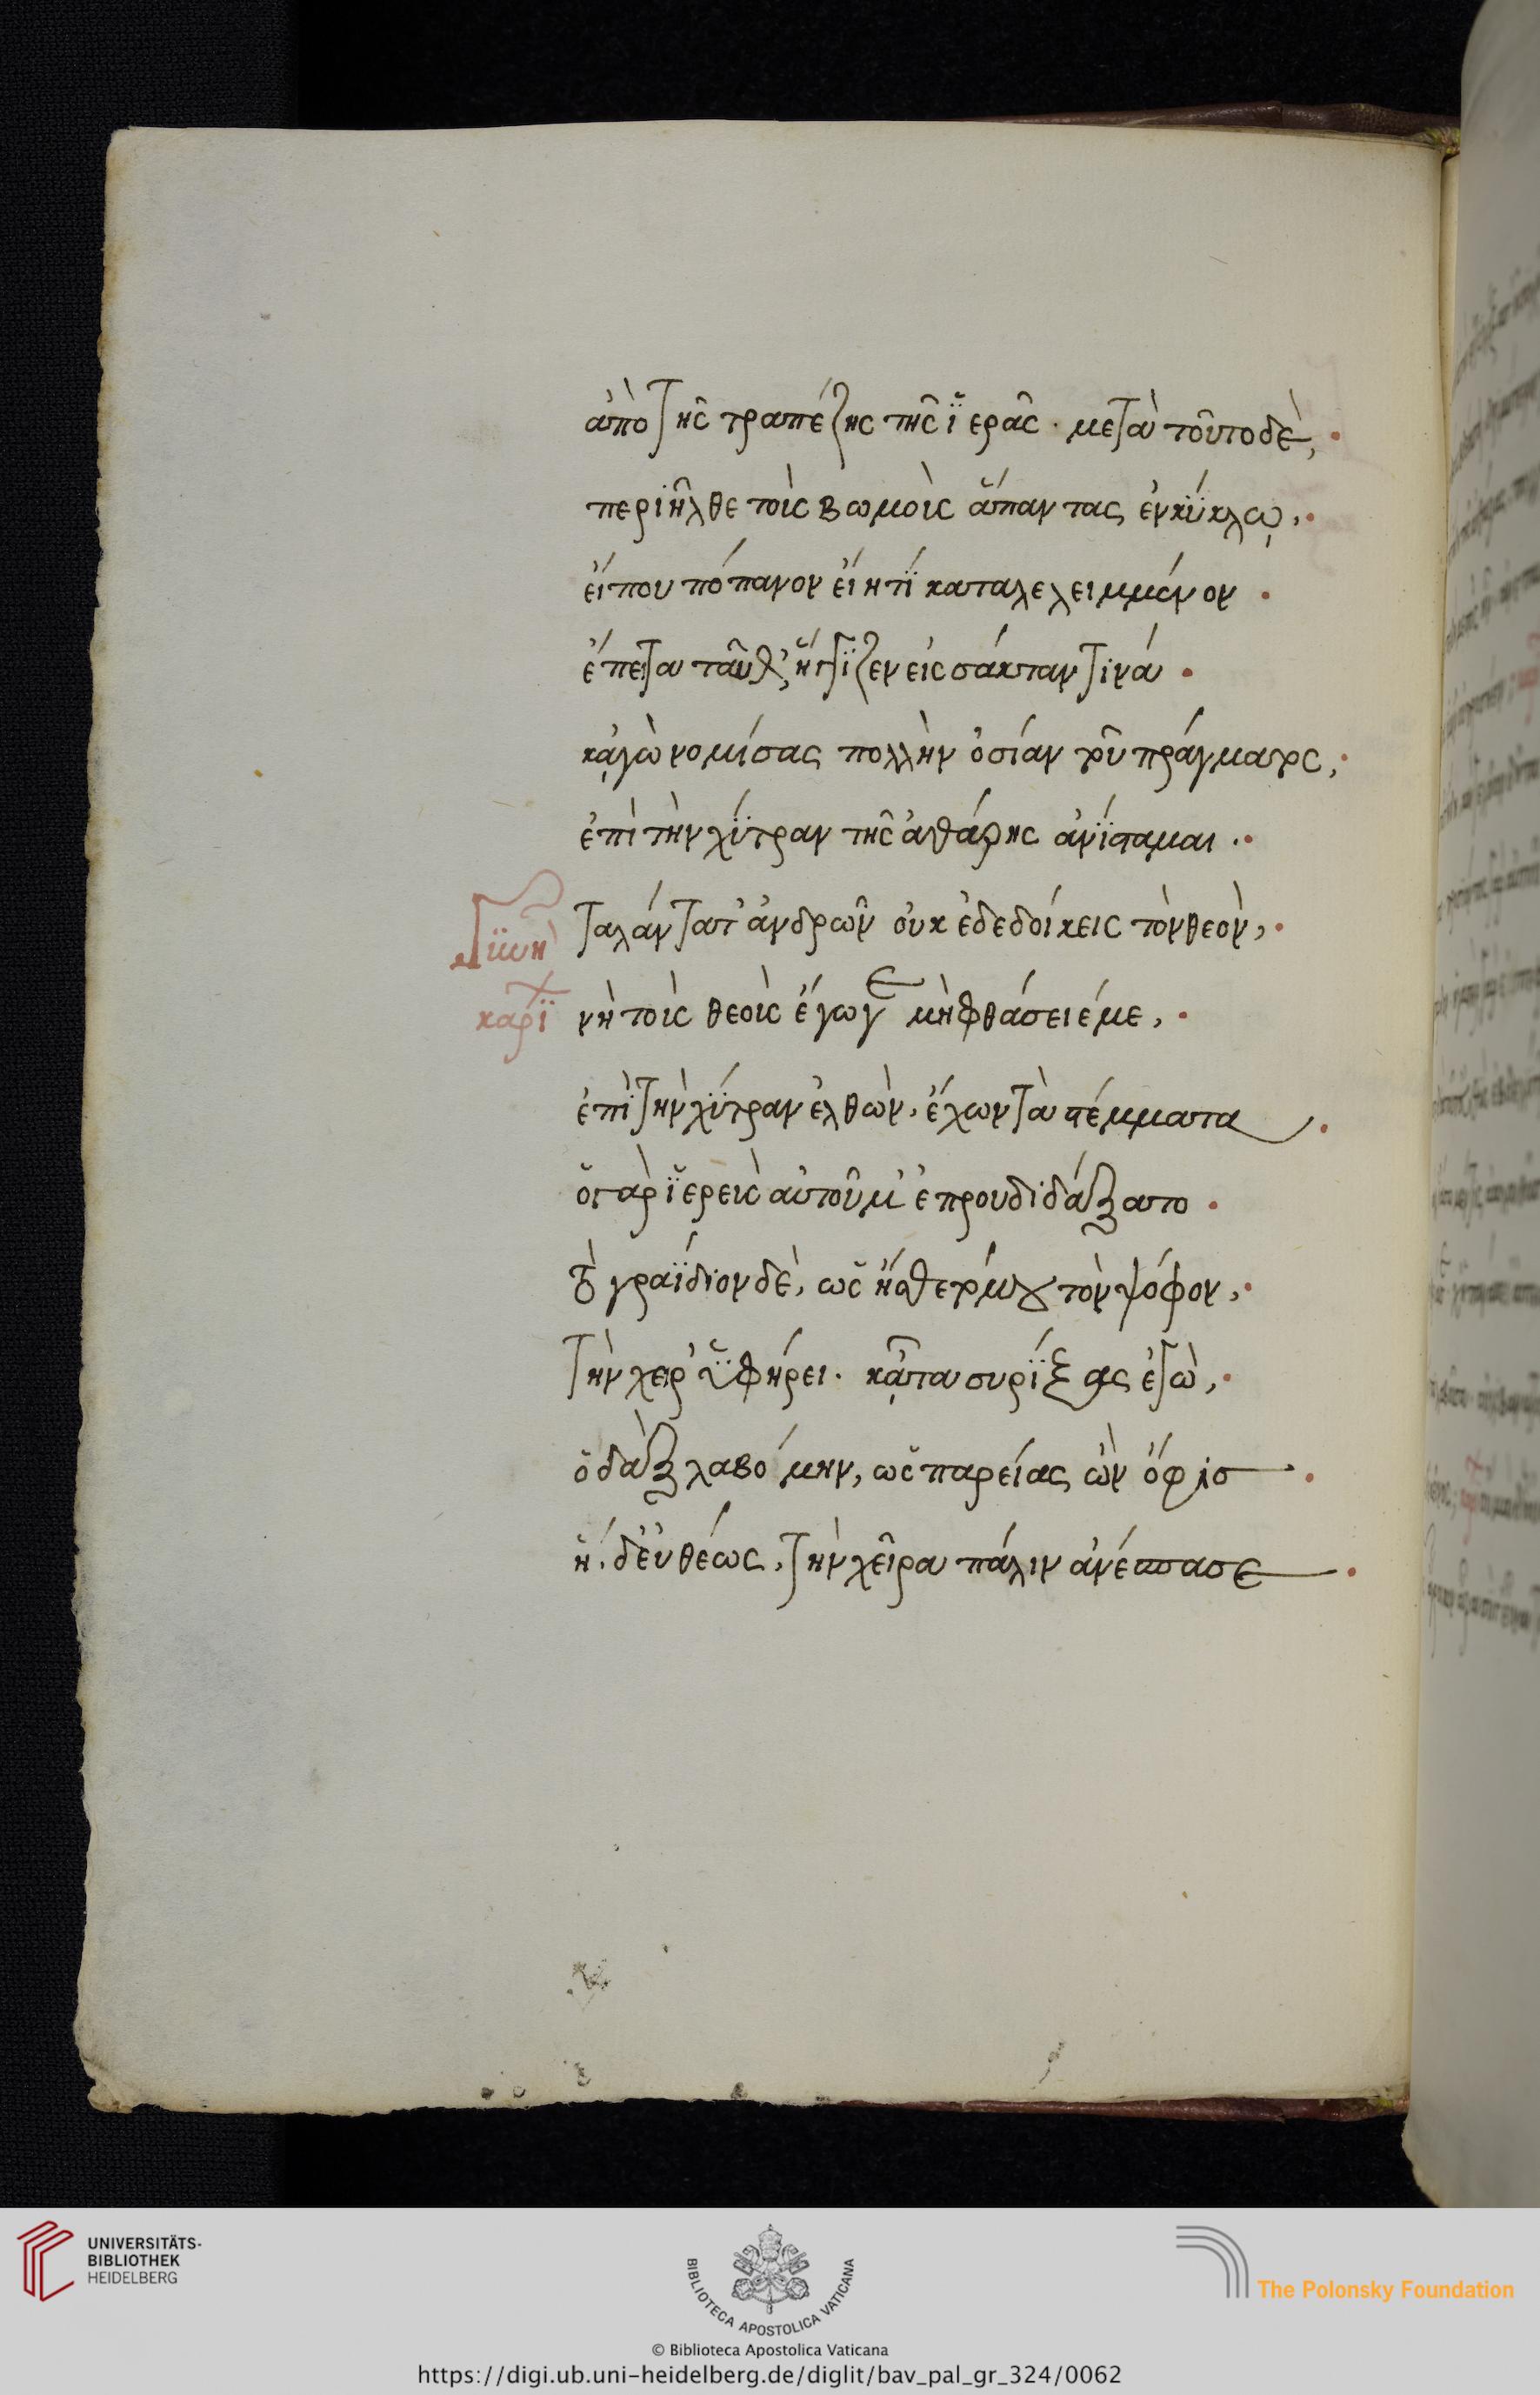 ἀπὸ τῆς τραπέζης τῆς ἱερᾶς · μετὰ τοῦτο δὲ,
περιῆλθε τοὺς βωμοὺς ἅπαντας ἐν κύκλῳ,
εἴ που πόπανον εἴη τὶ καταλελειμμένον ·
ἔπειτα ταῦθ' ἥγιζεν εἰς σάκταν τινά ·
κᾀγὼ νομίσας πολλὴν ὁσίαν τοῦ πράγματος,
ἐπὶ τὴν χύτραν τῆς ἀθάρης ἀνίσταμαι ·
γυνὴ ταλάντατ' ἀνδρῶν οὐκ ἐδεδοίκεις τὸν θεὸν,
καρί νὴ τοὺς θεοὺς ἔγωγε μὴ φθάσειέ με,
ἐπὶ τὴν χύτραν ἐλθὼν, ἔχων τὰ στέμματα ·
ὁ γὰρ ἱερεὺς αὐτοῦ μ' ἐπρουδιδάξατο ·
τὸ γραΐδιον δὲ, ὡς ᾔσθετό μου τὸν ψόφον,
τὴν χεῖρ' ὑφήρει · κᾆτα συρίξας ἐγὼ,
ὁδὰξ λαβόμην, ὡς παρείας ὢν ὄφις ·
ἡ δ' εὐθέως, τὴν χεῖρα πάλιν ἀνέσπασε ·
UNIVERSITÄTS-
BIBLIOTHEK
HEIDELBERG
BIBLIOTECA APOSTOLICA VATICANA
The Polonsky Foundation
© Biblioteca Apostolica Vaticana
https://digi.ub.uni-heidelberg.de/diglit/bav_pal_gr_324/0062